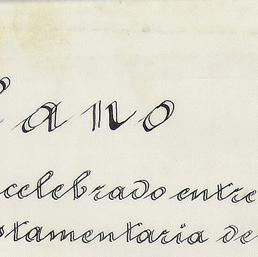 ano
celebrado entre
stamentaria de